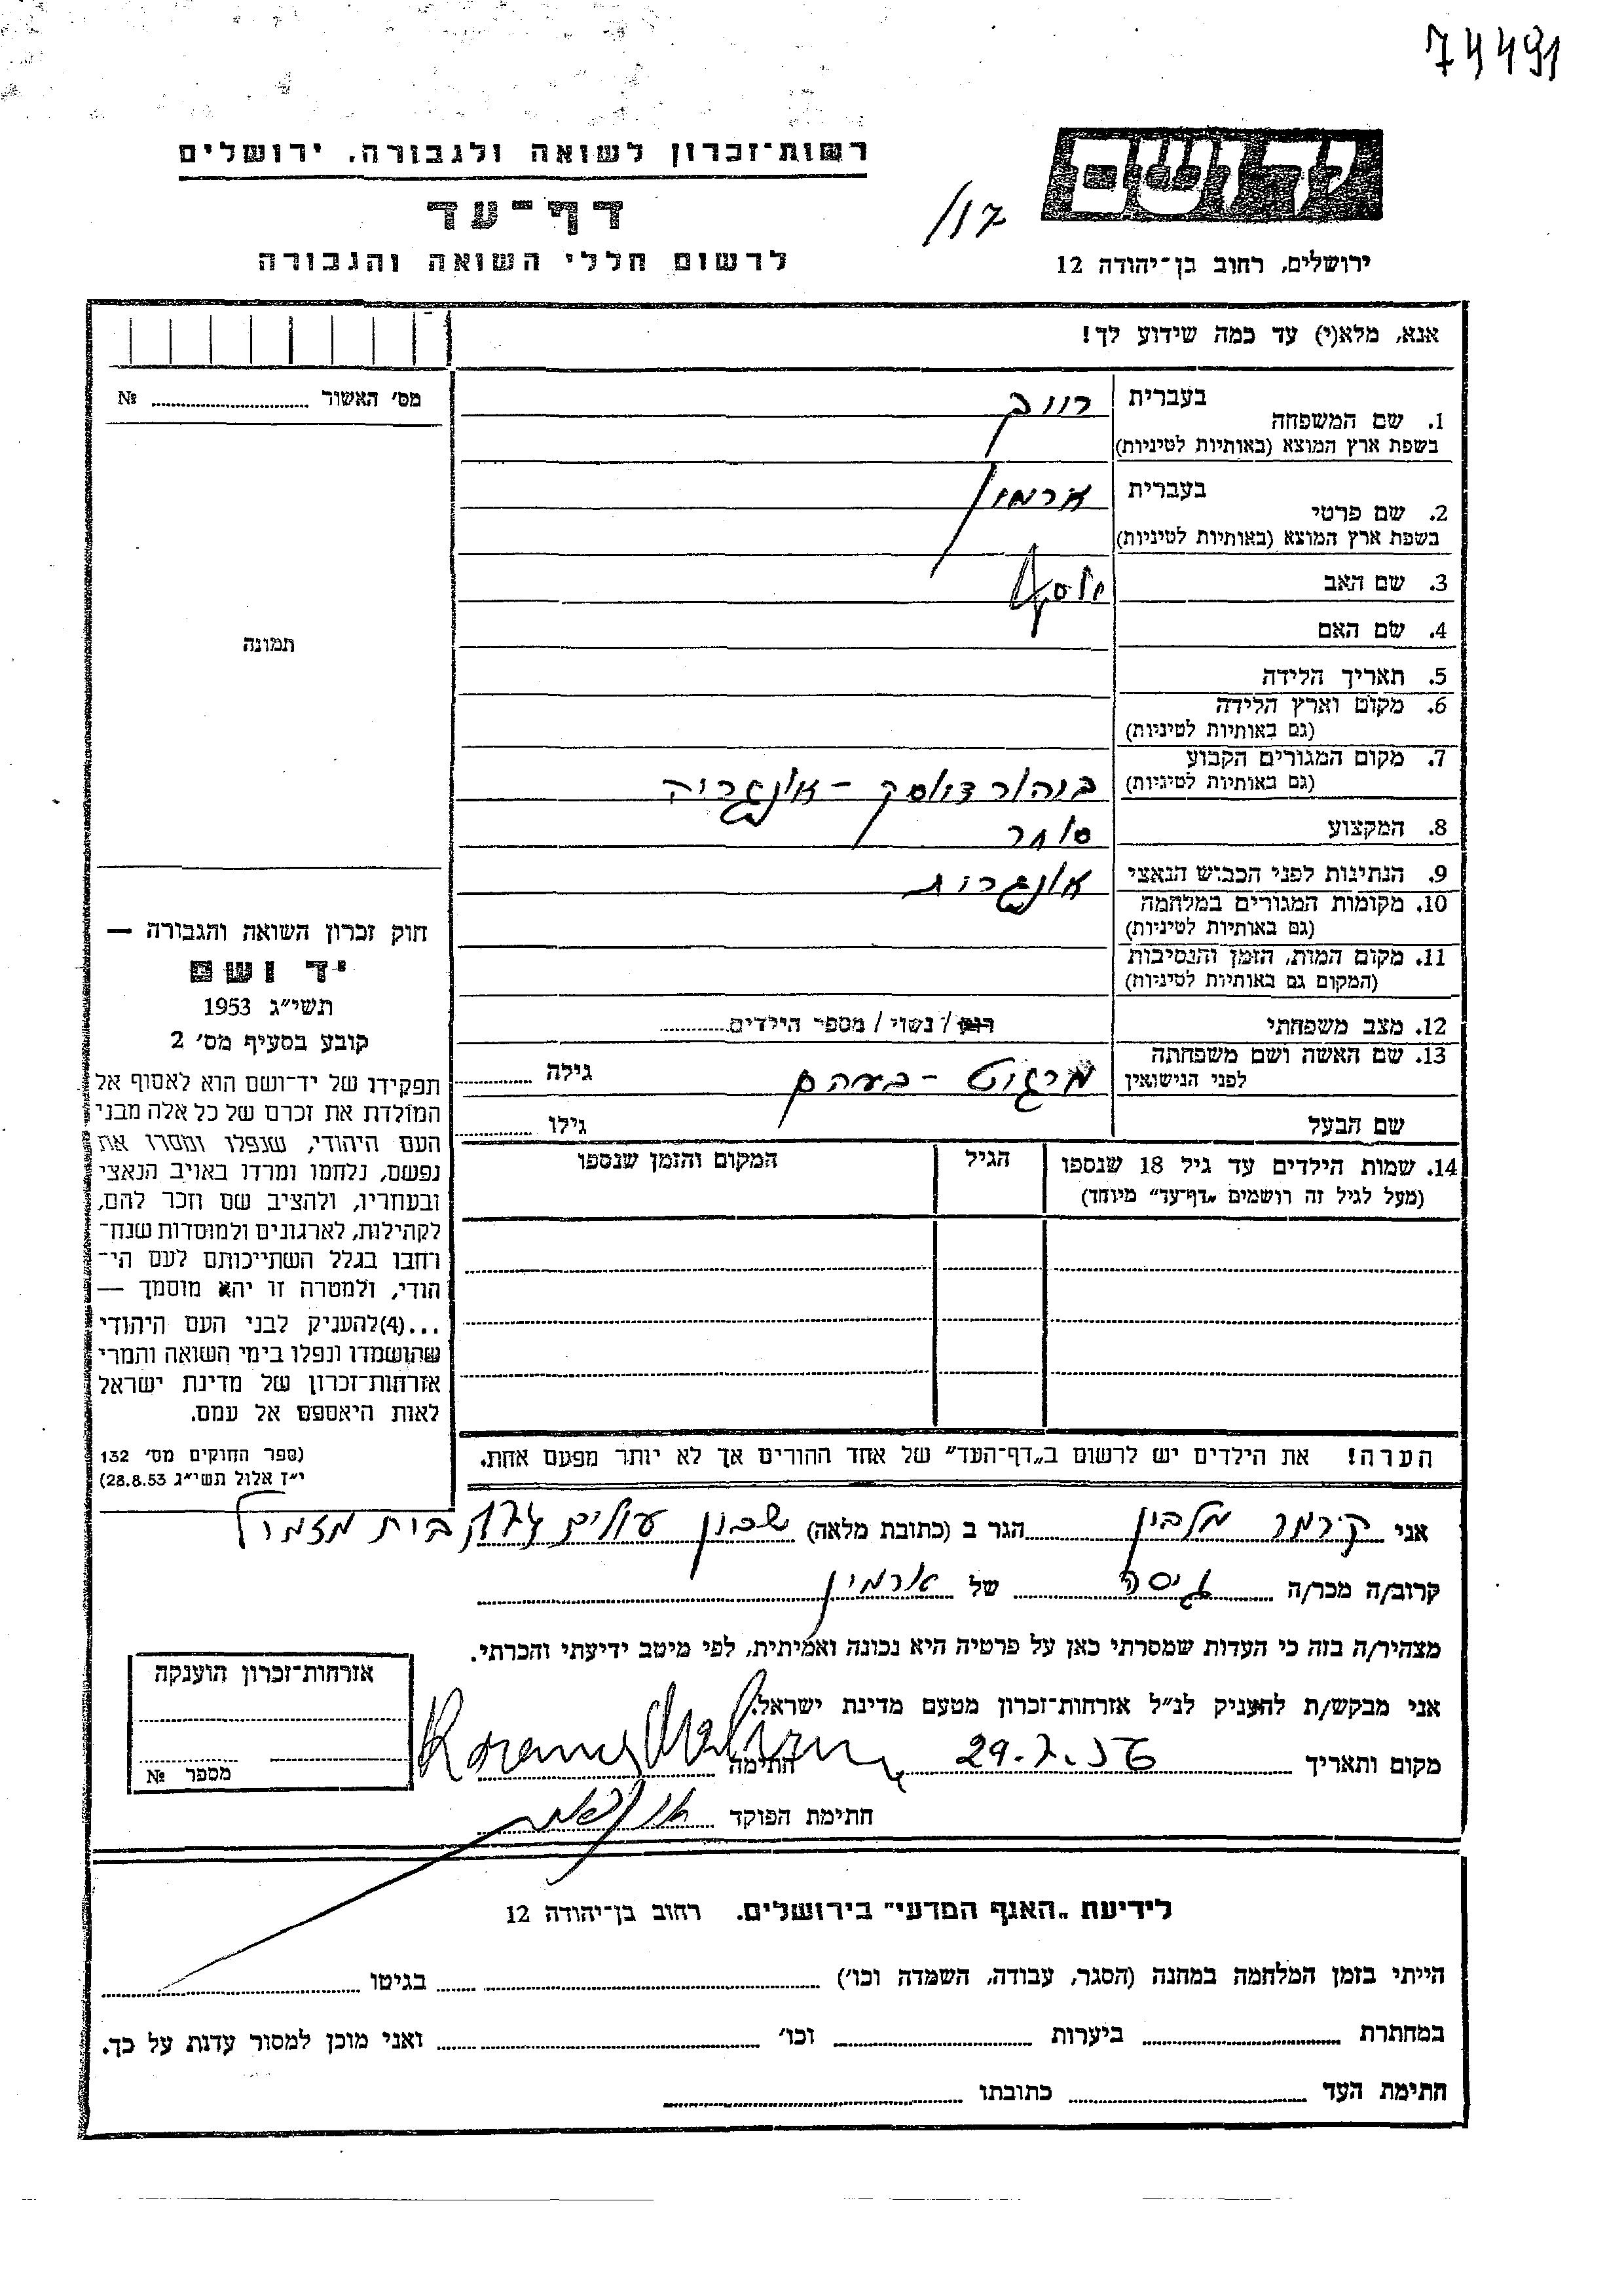 74491
רשות־זכרון לשואה ולגבורה. ירושלים
ידושם
דף־עד
17/
לרשום חללי השואה והגבורה
ירושלים, רחוב בן־יהודה 12
אנא, מלא(י) עד כמה שידוע לך!
מס׳ האשור № 
1. שם המשפחה בעברית
בשפת ארץ המוצא (באותיות לטיניות)
2. שם פרטי בעברית ארמין
בשפת ארץ המוצא (באותיות לטיניות)
3. שם האב יוסף
4. שם האם
תמונה
5. תאריך הלידה
6. מקום וארץ הלידה
(גם באותיות לטיניות)
7. מקום המגורים הקבוע
(גם באותיות לטיניות) אונגריה
8. המקצוע סוחר
9. הנתינות לפני הכבוש הנאצי אונגרית
10. מקומות המגורים במלחמה
(גם באותיות לטיניות)
11. מקום המות, הזמן והנסיבות
(המקום גם באותיות לטיניות)
12. מצב משפחתי רווק / נשוי / מספר הילדים
13. שם האשה ושם משפחתה
לפני הנישואין מרגיט גילה
שם הבעל גילו
14. שמות הילדים עד גיל 18 שנספו הגיל המקום והזמן שנספו
(מעל לגיל זה רושמים „דף־עד״ מיוחד)
חוק זכרון השואה והגבורה —
יד ושם
תשי״ג 1953
קובע בסעיף מס׳ 2
תפקידו של יד־ושם הוא לאסוף אל
המולדת את זכרם של כל אלה מבני
העם היהודי, שנפלו ומסרו את
נפשם, נלחמו ומרדו באויב הנאצי
ובעוזריו, ולהציב שם וזכר להם,
לקהילות, לארגונים ולמוסדות שנח־
רחבו בגלל השתייכותם לעם הי־
הודי, ולמטרה זו יהא מוסמך —
...(4)להעניק לבני העם היהודי
שהושמדו ונפלו בימי השואה והמרי
אזרחות־זכרון של מדינת ישראל
לאות היאספם אל עמם.
(ספר החוקים מס׳ 132
י״ז אלול תשי״ג 28.8.53)
הערה! את הילדים יש לרשום ב„דף־העד״ של אחד ההורים אך לא יותר מפעם אחת.
אני הגר ב (כתובת מלאה) שכון עולים בית מזמיל
קרוב/ה מכר/ה גיסה של ארמין
מצהיר/ה בזה כי העדות שמסרתי כאן על פרטיה היא נכונה ואמיתית, לפי מיטב ידיעתי והכרתי.
אני מבקש/ת להעניק לנ״ל אזרחות־זכרון מטעם מדינת ישראל.
מקום ותאריך 29.7.56 חתימה
חתימת הפוקד
אזרחות־זכרון הוענקה
מספר №
לידיעת „האגף המדעי״ בירושלים. רחוב בן־יהודה 12
הייתי בזמן המלחמה במחנה (הסגר, עבודה, השמדה וכו׳) בגיטו
במחתרת ביערות וכו׳ ואני מוכן למסור עדות על כך.
חתימת העד כתובתו